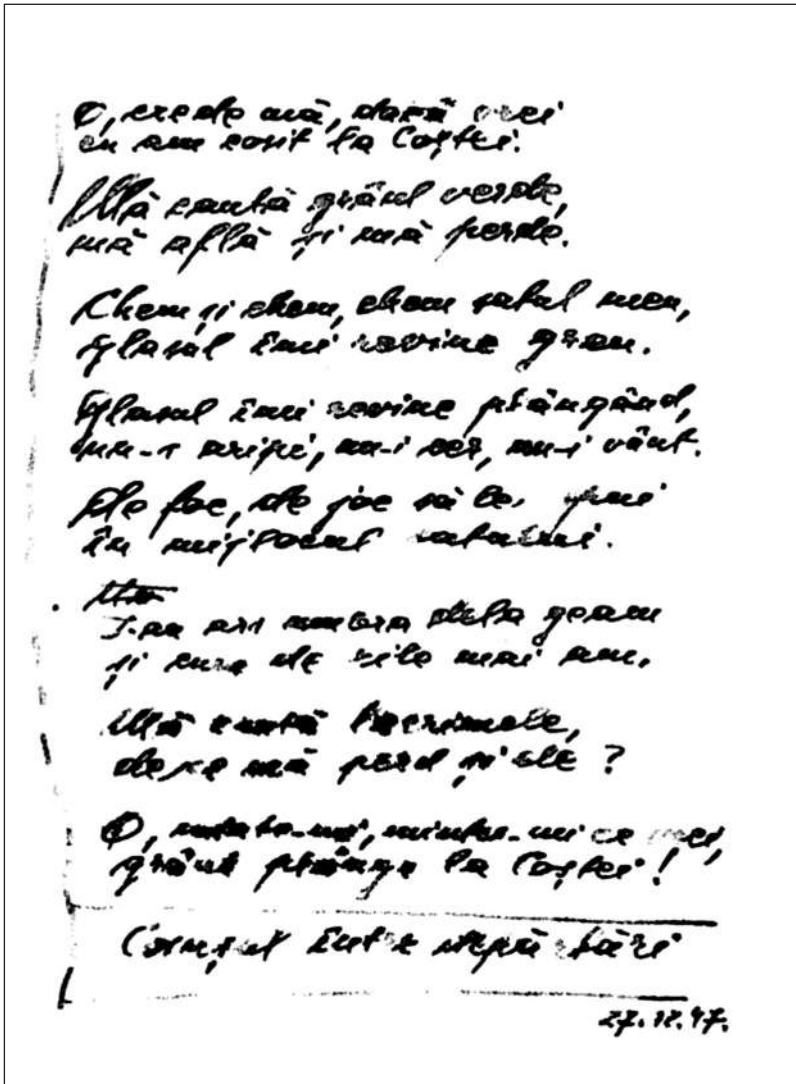 O, crede mă, dacă vrei
eu am cosit la Coștei.
Mă caută grâul verde,
mă află și mă perde.
Chem și chem, chem satul meu,
glasul îmi revine greu.
Glasul îmi revine plângând,
nu-i aripi, nu-i cer, nu-i vânt.
De foc, de joc să le, pui
în mijlocul satului.
I-au ars umbra dela geam
și de zile mai am,
Mă caută lacrimele,
dece mă perd și ele?
O, minte-mi ce vrei,
grâul plânge la Coștei!
27.12.97.